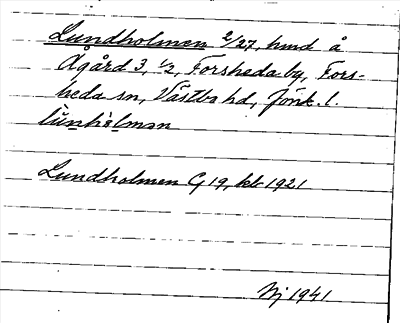 Lundholmen 2/27, hmd å
Ågård 3, 1/2, Forsheda by, Fors-
heda sn, Västbo hd, Jönk. l.
lùnhòlman
Lundholmen G 19, kb 1921
Nj 1941